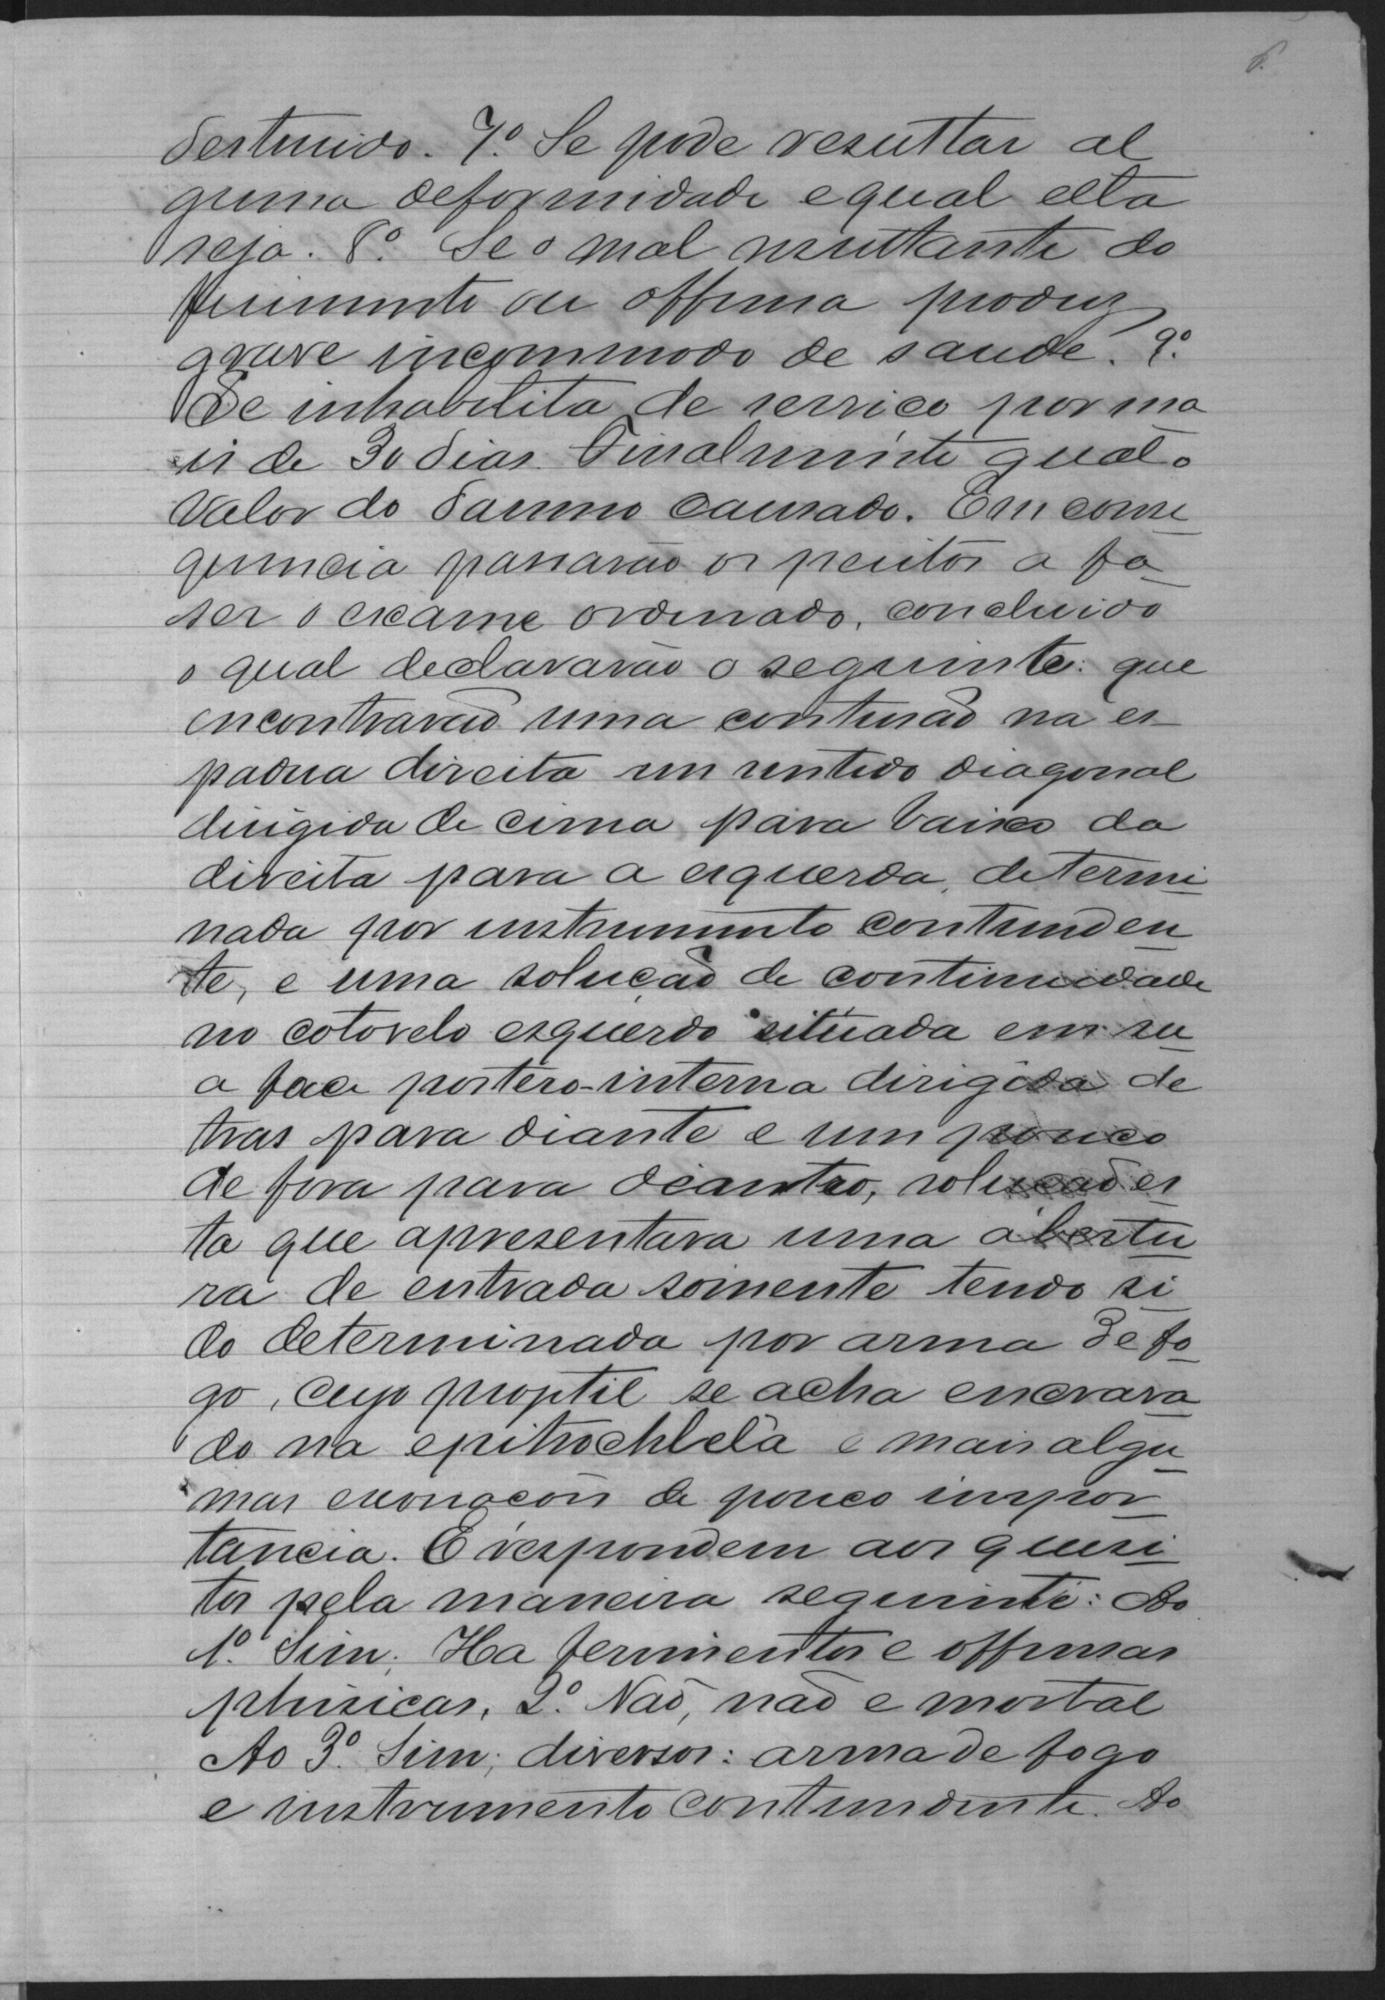 6.
destruido. 7.º Se pode resultar al
guma deformidade e qual ella
seja. 8.º Se o mal resultante do
ferimento ou offensa produz
grave incommodo de saude. 9.º
Se inhabilita de serviço por ma
is de 30 dias. Finalmente qual o
valor do damno causado. Em conse
quencia passarão os peritos a fa-
ser o exame ordenado, concluido
o qual declararão o seguinte: que
encontrarão uma contusão na es-
padua direita em sentido diagonal
dirigida de cima para baixo da
direita para a esquerda, determi
nada por instrumento contunden
te, e uma solução de continuidade
no cotovelo esquerdo situada em su
a face postero-interna dirigida de
tras para diante e um pouco
de fora para deantro, solução es
ta que apresentava uma abertu
ra de entrada somente tendo si
do determinada por arma de fo-
go, cujo projtil se acha encrava
do na epitrochléa e mais algu
mas escoriacoes de pouco impor
tancia. E respondem aos quesi
tos pela maneira seguinte: Ao
1.º Sim; Ha ferimentos e offensas
phisicas, 2.º Não, não e mortal
Ao 3.º Sim; diversos: arma de fogo
e instrumento contundente. Ao